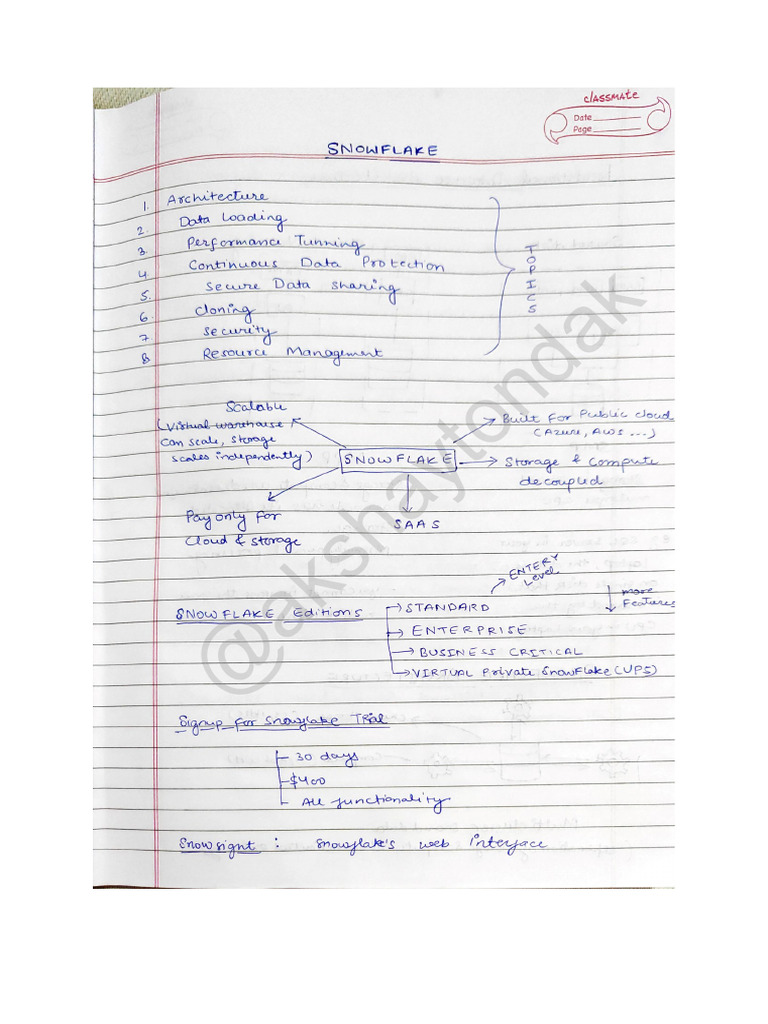 classmate
Date
Page
SNOWFLAKE
1. Architecture
2. Data Loading
3. Performance Tunning
4. Continuous Data Protection
5. Secure Data sharing
6. Cloning
7. Security
8. Resource Management
TOPICS
Scalable
(Virtual warehouse
can scale, storage
scales independently)
SNOWFLAKE
Built for Public cloud
(Azure, AWS ...)
Storage & Compute
decoupled
Pay only for
Cloud & storage
SAAS
SNOWFLAKE Editions
STANDARD
ENTERY
Level
more
Features
ENTERPRISE
BUSINESS CRITICAL
VIRTUAL Private Snowflake (VPS)
Signup for Snowflake Trial
30 days
$400
All functionality
Snowsight : Snowflake's web interface
@akshaytondak